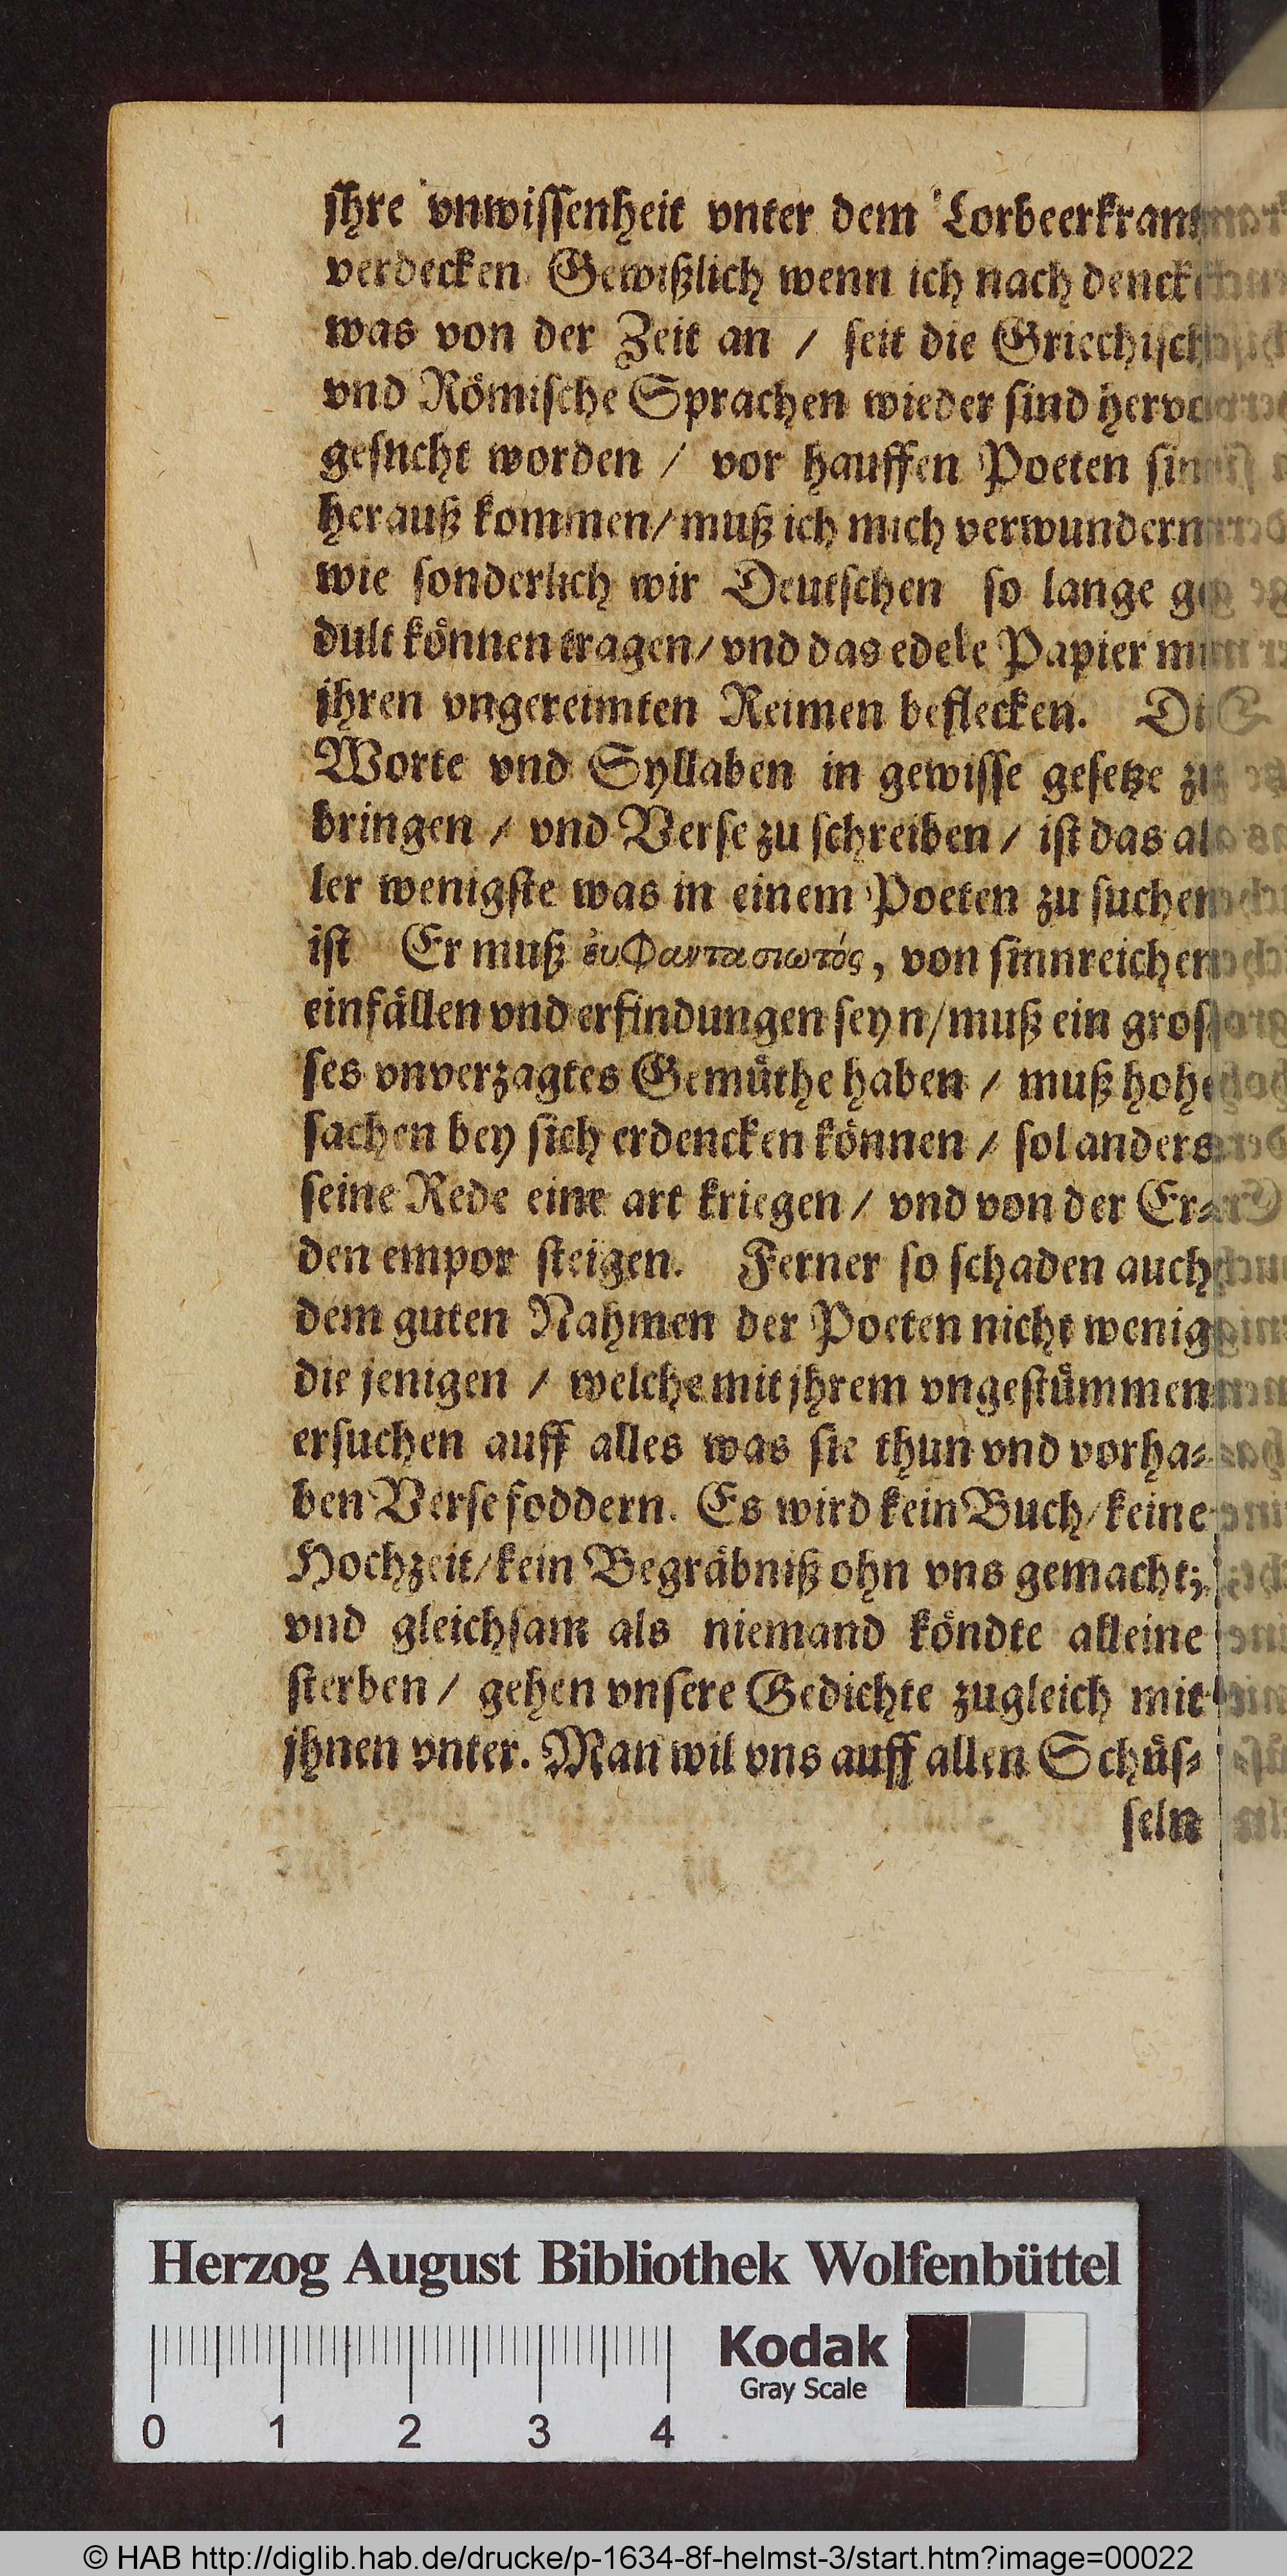 jhre vnwissenheit vnter dem Lorbeerkrantz
verdecken. Gewißlich wenn ich nach dencke
was von der Zeit an / seit die Griechisch
vnd Römische Sprachen wieder sind hervor
gesucht worden / vor hauffen Poeten sind
herauß kommen/ muß ich mich verwundern
wie sonderlich wir Deutschen so lange ge
dult können tragen/ vnd das edele Papier mit
jhren vngereimten Reimen beflecken. Die
Worte vnd Syllaben in gewisse gesetze zu
bringen / vnd Verse zu schreiben / ist das al
ler wenigste was in einem Poeten zu suchen
ist Er muß ἐυφαντασιωτός, von sinnreichen
einfällen vnd erfindungen seyn/ muß ein gros
ses vnverzagtes Gemüthe haben / muß hohe
sachen bey sich erdencken können / sol anders
seine Rede eine art kriegen / vnd von der Er-
den empor steigen. Ferner so schaden auch
dem guten Nahmen der Poeten nicht wenig
die jenigen / welche mit jhrem vngestümmen
ersuchen auff alles was sie thun vnd vorha-
ben Verse foddern. Es wird kein Buch/ keine
Hochzeit/ kein Begräbniß ohn vns gemacht;
vnd gleichsam als niemand köndte alleine
sterben / gehen vnsere Gedichte zugleich mit
jhnen vnter. Man wil vns auff allen Schüs-
seln
Herzog August Bibliothek Wolfenbüttel
Kodak
Gray Scale
0 1 2 3 4
© HAB http://diglib.hab.de/drucke/p-1634-8f-helmst-3/start.htm?image=00022